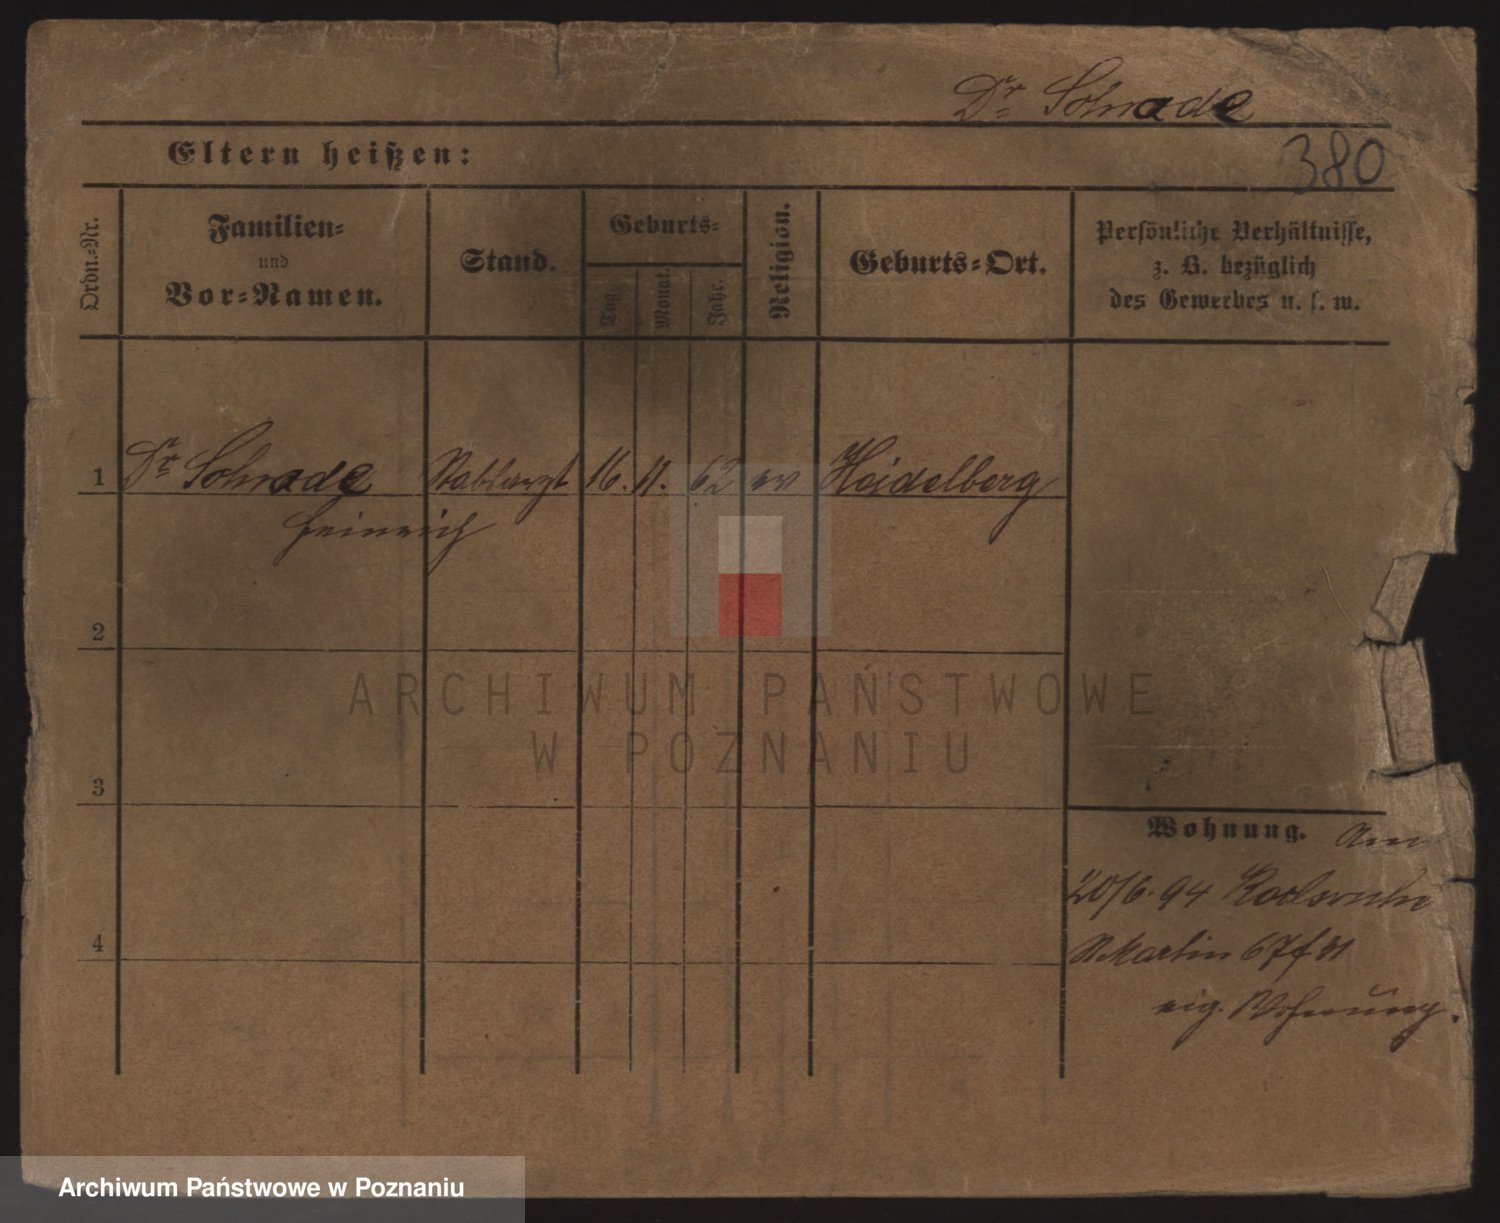 Dr Schrade
380
Eltern heißen:
Ordn.-Nr.
Familien-
und
Vor-Namen.
Stand.
Geburts-
Tag.
Monat.
Jahr.
Religion.
Geburts-Ort.
Persönliche Verhältnisse,
z. B. bezüglich
des Gewerbes u. s. w.
1 Dr Schrade Stabsarzt 16. 11. 62 ev Heidelberg
Heinrich
2
3
4
Wohnung. Am
20/6.94 Karlsruhe
St Martin 67
eig. Wohnung.
ARCHIWUM PAŃSTWOWE
W POZNANIU
Archiwum Państwowe w Poznaniu